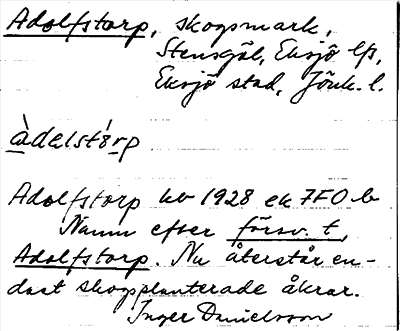 Adolfstorp, skogsmark,
Stensgöl, Eksjö lfs,
Eksjö stad, Jönk. l.
àdalstórp
Adolfstorp hv 1928 ek 7F0 b
Namn efter försv. t,
Adolfstorp. Nu återstår en-
dast skogsplanterade åkrar.
Inger Danielsson